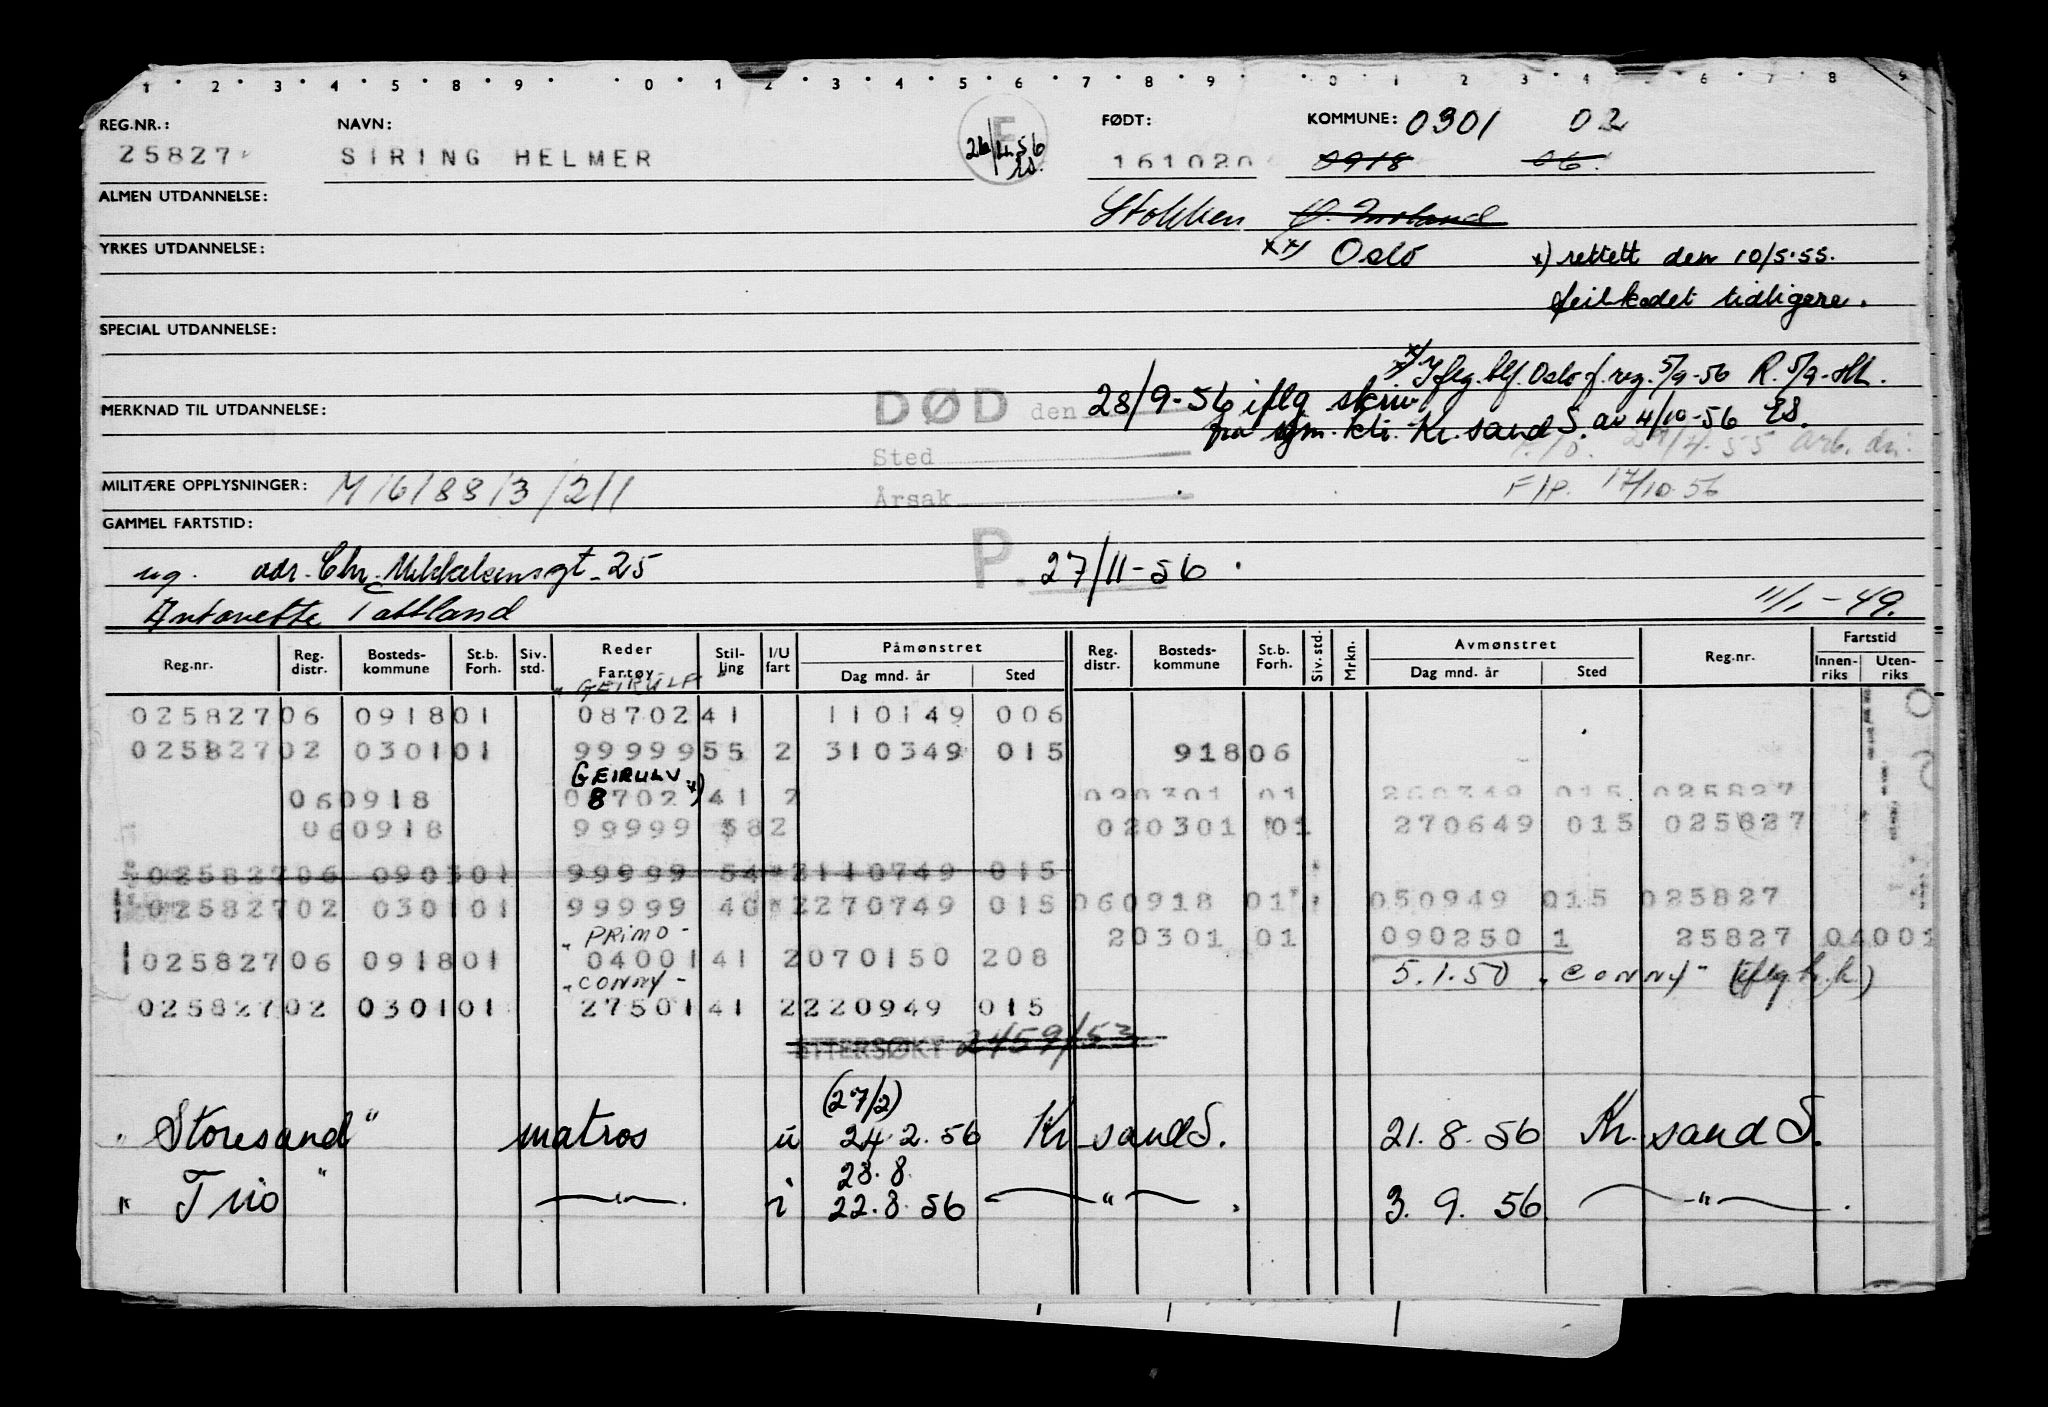 1 2 3 4 5 8 9 0 1 2 3 4 5 6 7 8 9 0 1 2 3 4 5 6 7 8 9
REG.NR.: NAVN: F FØDT: KOMMUNE: 0301 02
25827 SIRING HELMER 161020 0918 06
ALMEN UTDANNELSE: Stokken
YRKES UTDANNELSE: xx) Oslo x) rettett den 10/5-55.
feilkodet tidligere.
SPECIAL UTDANNELSE:
Iflg. blf. Oslo f. reg. 5/9-56 R. 5/9-
MERKNAD TIL UTDANNELSE: DØD den 28/9-56 iflg skriv
fra Kr. sand S. av 4/10-56 ES.
Sted 55 arb. dir.
MILITÆRE OPPLYSNINGER: M/6/88/3/2/1 Årsak F/P. 17/10 56
GAMMEL FARTSTID:
ug. adr. Chr. Mikkelsensgt. 25 P. 27/11-56
Antonette Tattland 11/1-49.
Reg.nr. Reg. distr. Bosteds-kommune St.b. Forh. Siv. std. Reder Fartøy Stil-ling I/U fart Påmønstret Dag mnd. år Sted Reg. distr. Bosteds-kommune St.b. Forh. Siv. std. Mrkn. Avmønstret Dag mnd. år Sted Reg.nr. Fartstid Innen-riks Uten-riks
"GEIRULF"
025827 06 0918 01 08702 41 110149 006
025827 02 0301 01 99999 55 2 310349 015 918 06
GEIRULV x)
06 0918 08702 41 2 020301 01 260349 015 025827
06 0918 99999 58 2 020301 01 270649 015 025827
025827 06 0903 01 99999 54 2 110749 015
025827 02 0301 01 99999 40 2 270749 015 060918 01 050949 015 025827
"PRIMO" 20301 01 090250 1 25827 04001
025827 06 0918 01 04001 41 2 070150 208
"CONNY" 5.1.50 "CONNY" (iflg h.k)
025827 02 0301 01 27501 41 2 220949 015
ETTERSØKT 2459/53
(27/2)
"Storesand" matros u 24.2.56 Kr. sand S. 21.8.56 Kr. sand S.
23.8.
"Trio" — " — i 22.8.56 — " — 3.9.56 — " —